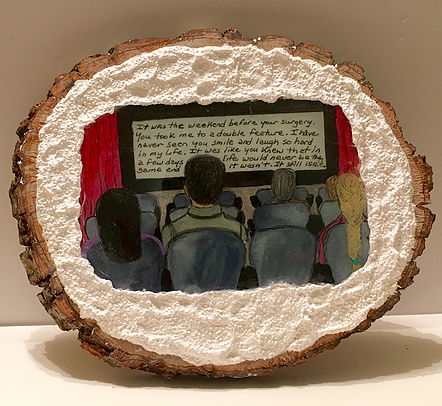 It was the weekend before your surgery.
You took me to a double feature. I have
never seen you smile and laugh so hard
in my life. It was like you knew that in
a few days life would never be the
same and it wasn't. It still isn't.